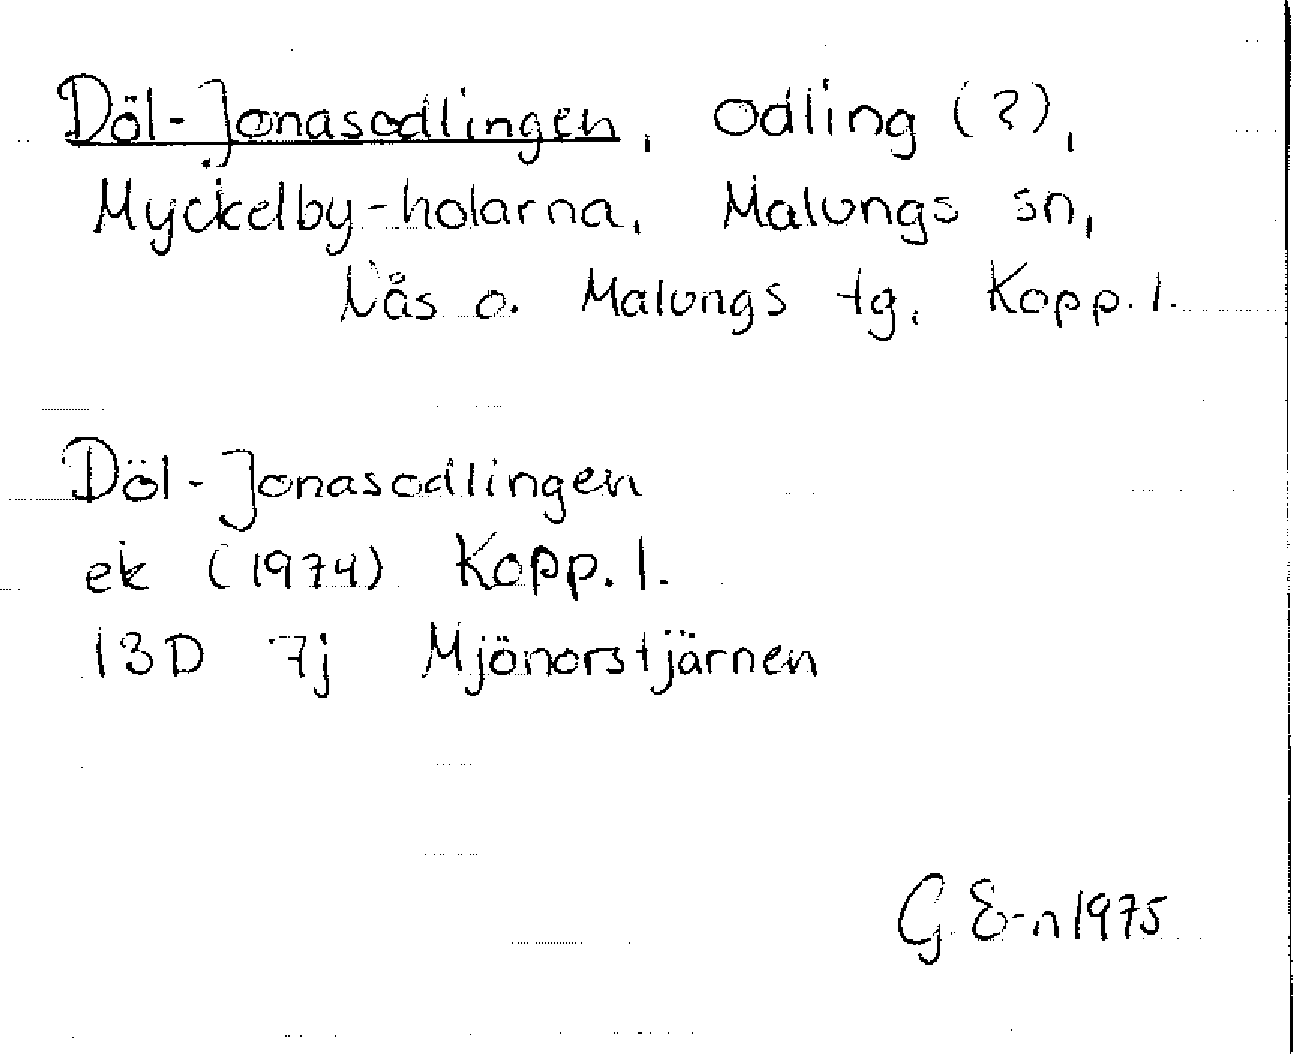 Döl-Jonasodlingen, odling (?),
Myckelby-holarna, Malungs sn,
Nås o. Malungs tg, Kopp. l.
Döl-Jonasodlingen
ek (1974) Kopp. l.
13D 7j Mjönorstjärnen
G E-n 1975